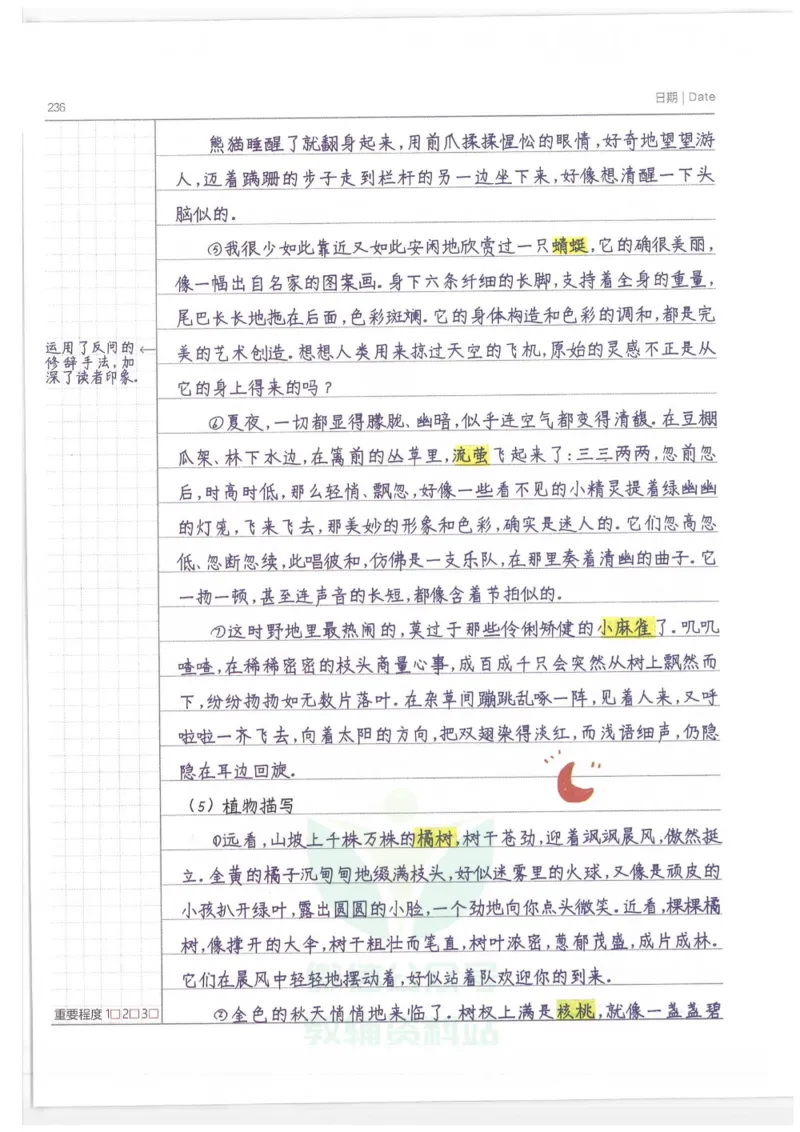 236
日期 | Date
熊猫睡醒了就翻身起来,用前爪揉揉惺忪的眼情,好奇地望望游
人,迈着蹒跚的步子走到栏杆的另一边坐下来,好像想清醒一下头
脑似的.
⑤我很少如此靠近又如此安闲地欣赏过一只蜻蜓,它的确很美丽,
像一幅出自名家的图案画.身下六条纤细的长脚,支持着全身的重量,
尾巴长长地拖在后面,色彩斑斓.它的身体构造和色彩的调和,都是完
美的艺术创造.想想人类用来掠过天空的飞机,原始的灵感不正是从
它的身上得来的吗?
运用了反问的
修辞手法,加
深了读者印象.
⑥夏夜,一切都显得朦胧、幽暗,似乎连空气都变得清馥.在豆棚
瓜架、林下水边,在篱前的丛草里,流萤飞起来了:三三两两,忽前忽
后,时高时低,那么轻悄、飘忽,好像一些看不见的小精灵提着绿幽幽
的灯笼,飞来飞去,那美妙的形象和色彩,确实是迷人的.它们忽高忽
低、忽断忽续,此唱彼和,仿佛是一支乐队,在那里奏着清幽的曲子.它
一扬一顿,甚至连声音的长短,都像含着节拍似的.
⑦这时野地里最热闹的,莫过于那些伶俐矫健的小麻雀了.叽叽
喳喳,在稀稀密密的枝头商量心事,成百成千只会突然从树上飘然而
下,纷纷扬扬如无数片落叶.在杂草间蹦跳乱啄一阵,见着人来,又呼
啦啦一齐飞去,向着太阳的方向,把双翅染得淡红,而浅语细声,仍隐
隐在耳边回旋.
(5)植物描写
①远看,山坡上千株万株的橘树,树干苍劲,迎着飒飒晨风,傲然挺
立.金黄的橘子沉甸甸地缀满枝头,好似迷雾里的火球,又像是顽皮的
小孩扒开绿叶,露出圆圆的小脸,一个劲地向你点头微笑.近看,棵棵橘
树,像撑开的大伞,树干粗壮而笔直,树叶浓密,葱郁茂盛,成片成林.
它们在晨风中轻轻地摆动着,好似站着队欢迎你的到来.
②金色的秋天悄悄地来临了.树杈上满是核桃,就像一盏盏碧
重要程度 1□2□3□
教辅资料站